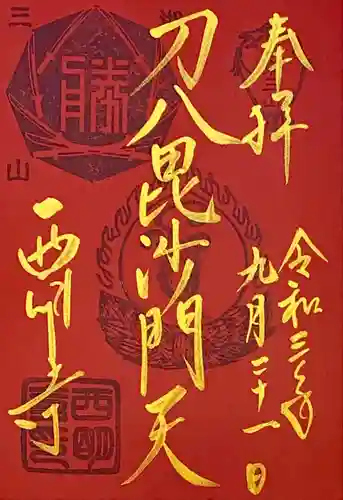 奉拝
令和三年
九月二十一日
刀八毘沙門天
西明寺
三
山
勝
西明